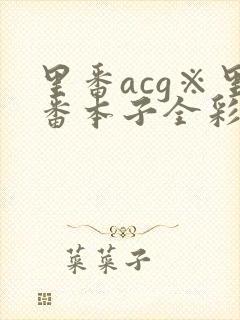 里番acg※里
番本子全彩
菜菜子